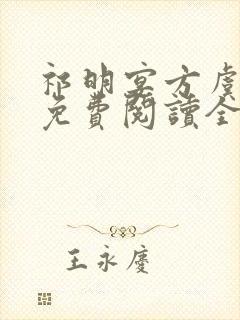 祁明宴方虞
免費閱讀全
王永慶